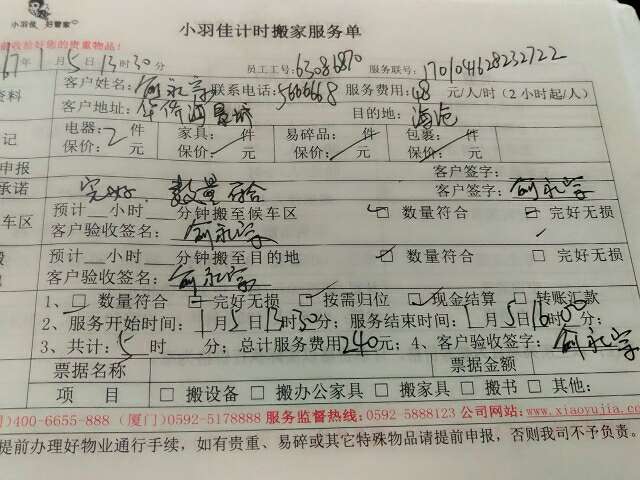 小羽佳 好管家
小羽佳计时搬家服务单
前收拾好您的贵重物品!
1月5日13时30分 员工工号:63086870 服务联号:170104628232722
资料 客户姓名: 联系电话:5666668 服务费用:48元/人/时(2小时起/人)
客户地址:华侨海景城 目的地:海沧
记 电器:2件 家具: 件 易碎品: 件 包裹: 件
保价: 元 保价: 元 保价: 元 保价: 元
申报 客户签字:
承诺 完好 数量符合 客户签字:
车区 预计__小时__分钟搬至候车区 数量符合 完好无损
客户验收签名:
预计__小时__分钟搬至目的地 数量符合 完好无损
客户验收签名:
1、 数量符合 完好无损 按需归位 现金结算 转账汇款
2、服务开始时间:1月5日13时30分;服务结束时间:1月5日16时00分;
3、共计:5时__分;总计服务费用240元;4、客户验收签字:
票据名称 票据金额
项 目 □ 搬设备 □ 搬办公家具 □ 搬家具 □ 搬书 □ 其他:
)400-6655-888 (厦门)0592-5178888 服务监督热线:0592-5888123 公司网站:www.xiaoyujia.com
提前办理好物业通行手续,如有贵重、易碎或其它特殊物品请提前申报,否则我司不予负责。